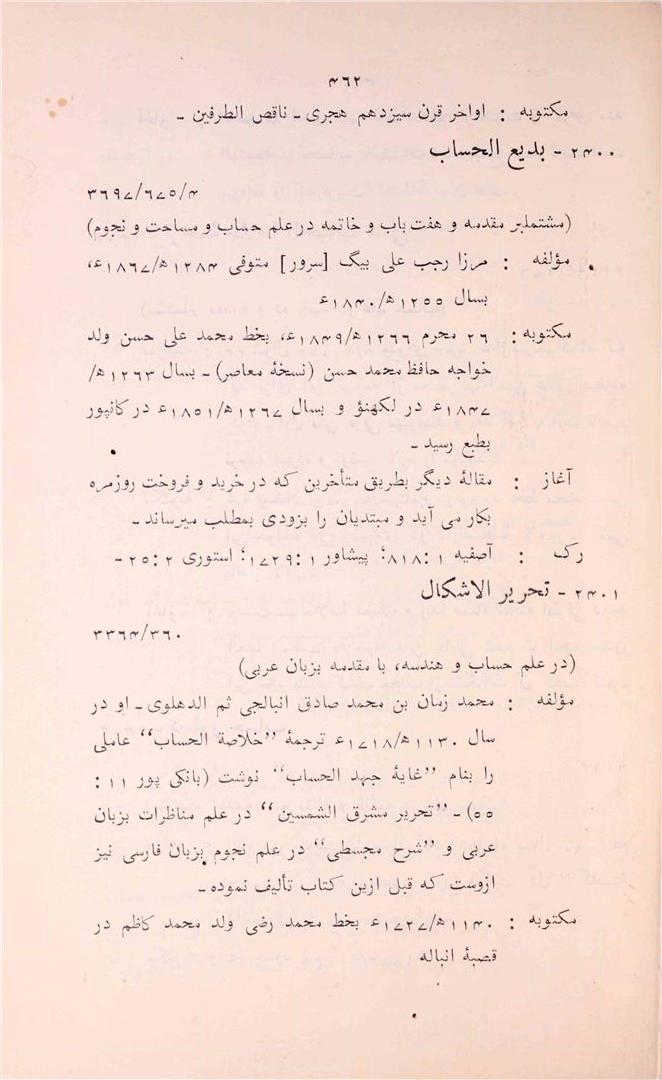 ۴۶۲
مکتوبه : اواخر قرن سیزدهم هجری ـ ناقص الطرفین ـ
۲۴۰۰ - بدیع الحساب
۳۶۹۷/۶۷۵/۴
(مشتملبر مقدمه و هفت باب و خاتمه در علم حساب و مساحت و نجوم)
مؤلفه : مرزا رجب علی بیگ [سرور] متوفی ۱۲۸۴ھ/۱۸۶۷ء،
بسال ۱۲۵۵ھ/۱۸۴۰ء
مکتوبه : ۲۶ محرم ۱۲۶۶ھ/۱۸۴۹ء، بخط محمد علی حسن ولد
خواجه حافظ محمد حسن (نسخهٔ معاصر) ـ بسال ۱۲۶۳ھ/
۱۸۴۷ء در لکهنؤ و بسال ۱۲۶۷ھ/۱۸۵۱ء در کانپور
بطبع رسید ـ
آغاز : مقالهٔ دیگر بطریق متأخرین که در خرید و فروخت روزمره
بکار می آید و مبتدیان را بزودی بمطلب میرساند ـ
رک : آصفیه ۱ : ۸۱۸؛ پیشاور ۱ : ۱۷۲۹؛ استوری ۲ : ۲۵ -
۲۴۰۱ - تحریر الاشکال
۳۳۶۴/۳۶۰
(در علم حساب و هندسه، با مقدمه بزبان عربی)
مؤلفه : محمد زمان بن محمد صادق انبالجی ثم الدهلوی ـ او در
سال ۱۱۳۰ھ/۱۷۱۸ء ترجمهٔ ”خلاصة الحساب“ عاملی
را بنام ”غایة جهد الحساب“ نوشت (بانکی پور ۱۱ :
۵۵) ـ ”تحریر مشرق الشمسین“ در علم مناظرات بزبان
عربی و ”شرح مجسطی“ در علم نجوم بزبان فارسی نیز
ازوست که قبل ازین کتاب تألیف نموده ـ
مکتوبه : ۱۱۴۰ھ/۱۷۲۷ء بخط محمد رضی ولد محمد کاظم در
قصبهٔ انباله